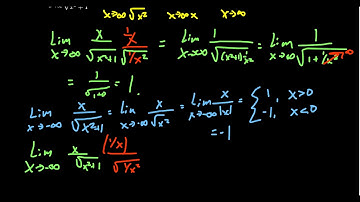 x→∞ √x² x→∞ x x→∞
Lim x→∞ x/√(x²+1) (1/x)/√(1/x²) = Lim x→∞ 1/√((x²+1) 1/x²) = Lim x→∞ 1/√(1+1/x²)
= 1/√(1+0) = 1.
Lim x→-∞ x/√(x²+1) = Lim x→-∞ x/√x² = Lim x→-∞ x/|x| = { 1, x>0
-1, x<0
= -1
Lim x→-∞ x/√(x²+1) (1/x)/√(1/x²)